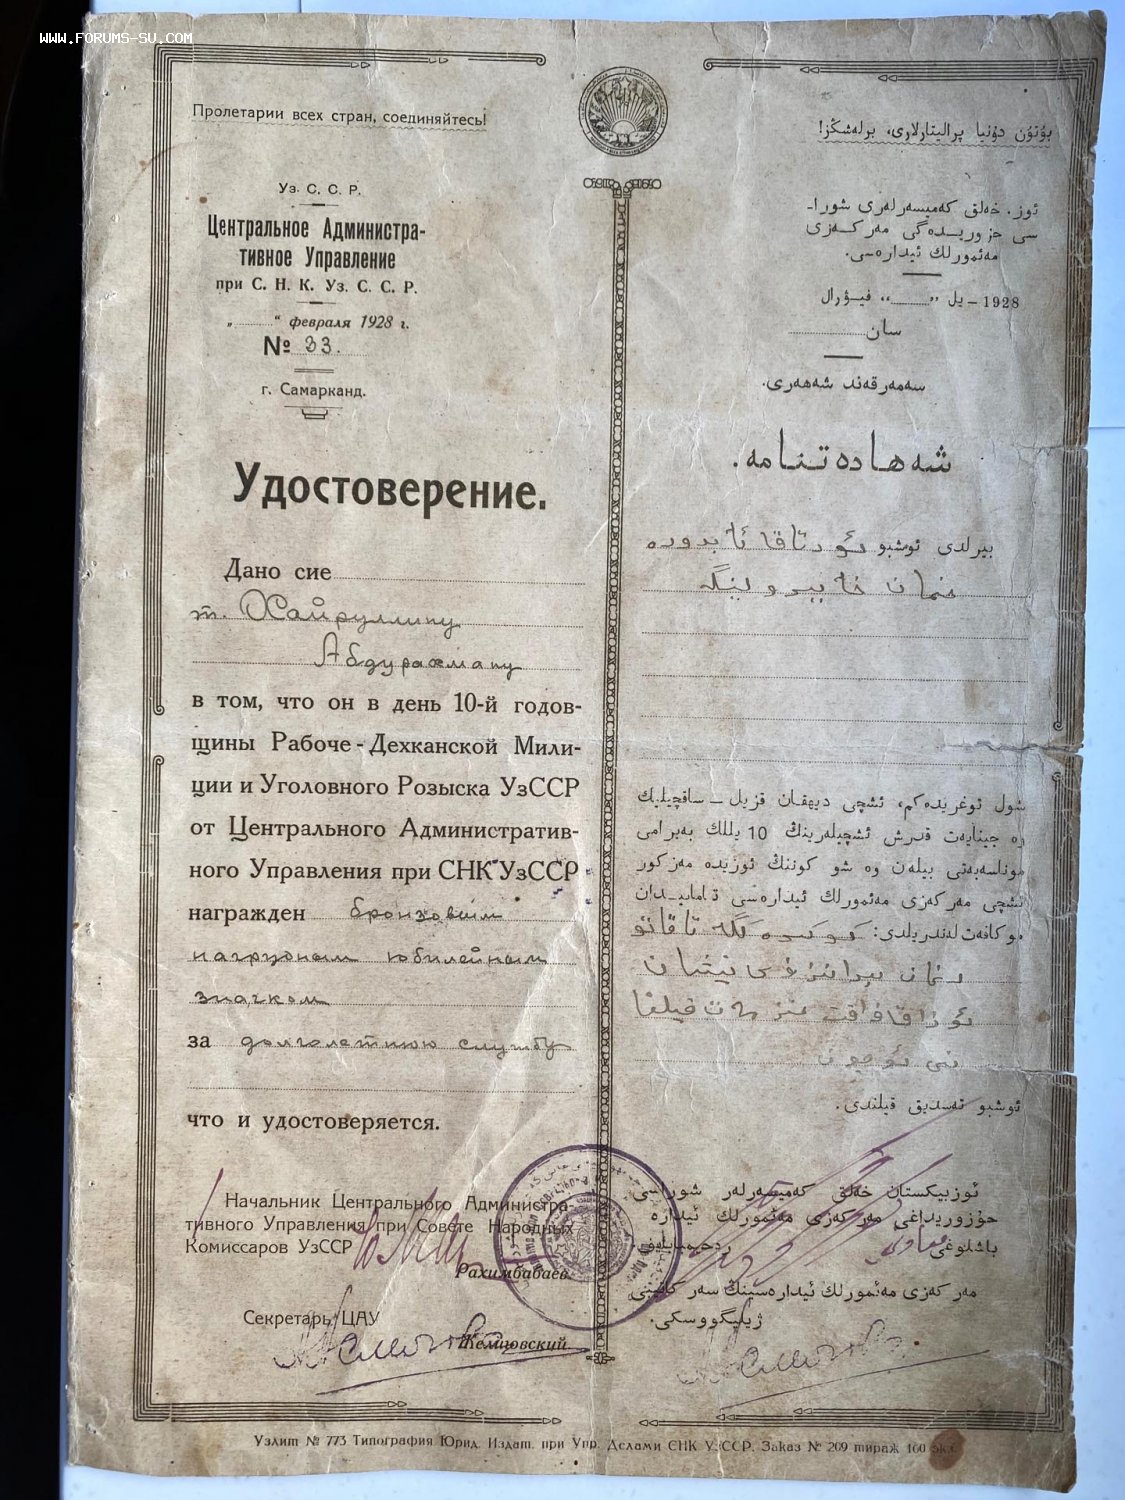 www.forums-su.com
Пролетарии всех стран, соединяйтесь!
Уз. С. С. Р.
Центральное Администра-
тивное Управление
при С. Н. К. Уз. С. С. Р.
„ “ февраля 1928 г.
№ 33.
г. Самарканд.
Удостоверение.
Дано сие
т. Хайруллину
Абдурахману
в том, что он в день 10-й годов-
щины Рабоче-Дехканской Мили-
ции и Уголовного Розыска УзССР
от Центрального Административ-
ного Управления при СНК УзССР
награжден бронзовым
нагрудным юбилейным
значком
за долголетнюю службу
что и удостоверяется.
Начальник Центрального Администра-
тивного Управления при Совете Народных
Комиссаров УзССР
Рахимбабаев.
Секретарь ЦАУ
Желцовский.
بۇتۇن دۇنيا پراليتارلارى، برلەشڭز!
ئوز. خەلق كەميسەرلەرى شورا-
سى حزوريدەگى مەركەزى
مەئمورلك ئيدارەسى.
1928 – يل „ “ فيۋرال
سان
سەمەرقەند شەھەرى.
شەھادەتنامە.
بيرلدى ئوشبو
شول توغريدەكم، ئشچى ديھقان قزيل – ساقچيليك
وە جينايەت قدرش ئشچيلەرينڭ 10 يللك بەيرامى
موناسەبەتى بيلەن وە شو كوننڭ ئوزيدە مەزكور
ئشچى مەركەزى مەئمورلك ئيدارەسى تامانيدان
موكافەت لەندريلدى:
ئوشبو تەسديق قيلندى.
ئوزبيكستان خەلق كەميسەرلەر شوراسى
حۇزوريداغى مەركەزى مەئمورلك ئيدارە
باشلوغى
مەركەزى مەئمورلك ئيدارەسينڭ سەركاتيبى
Узлит № 773 Типография Юрид. Издат. при Упр. Делами СНК УзССР. Заказ № 209 тираж 100 экз.